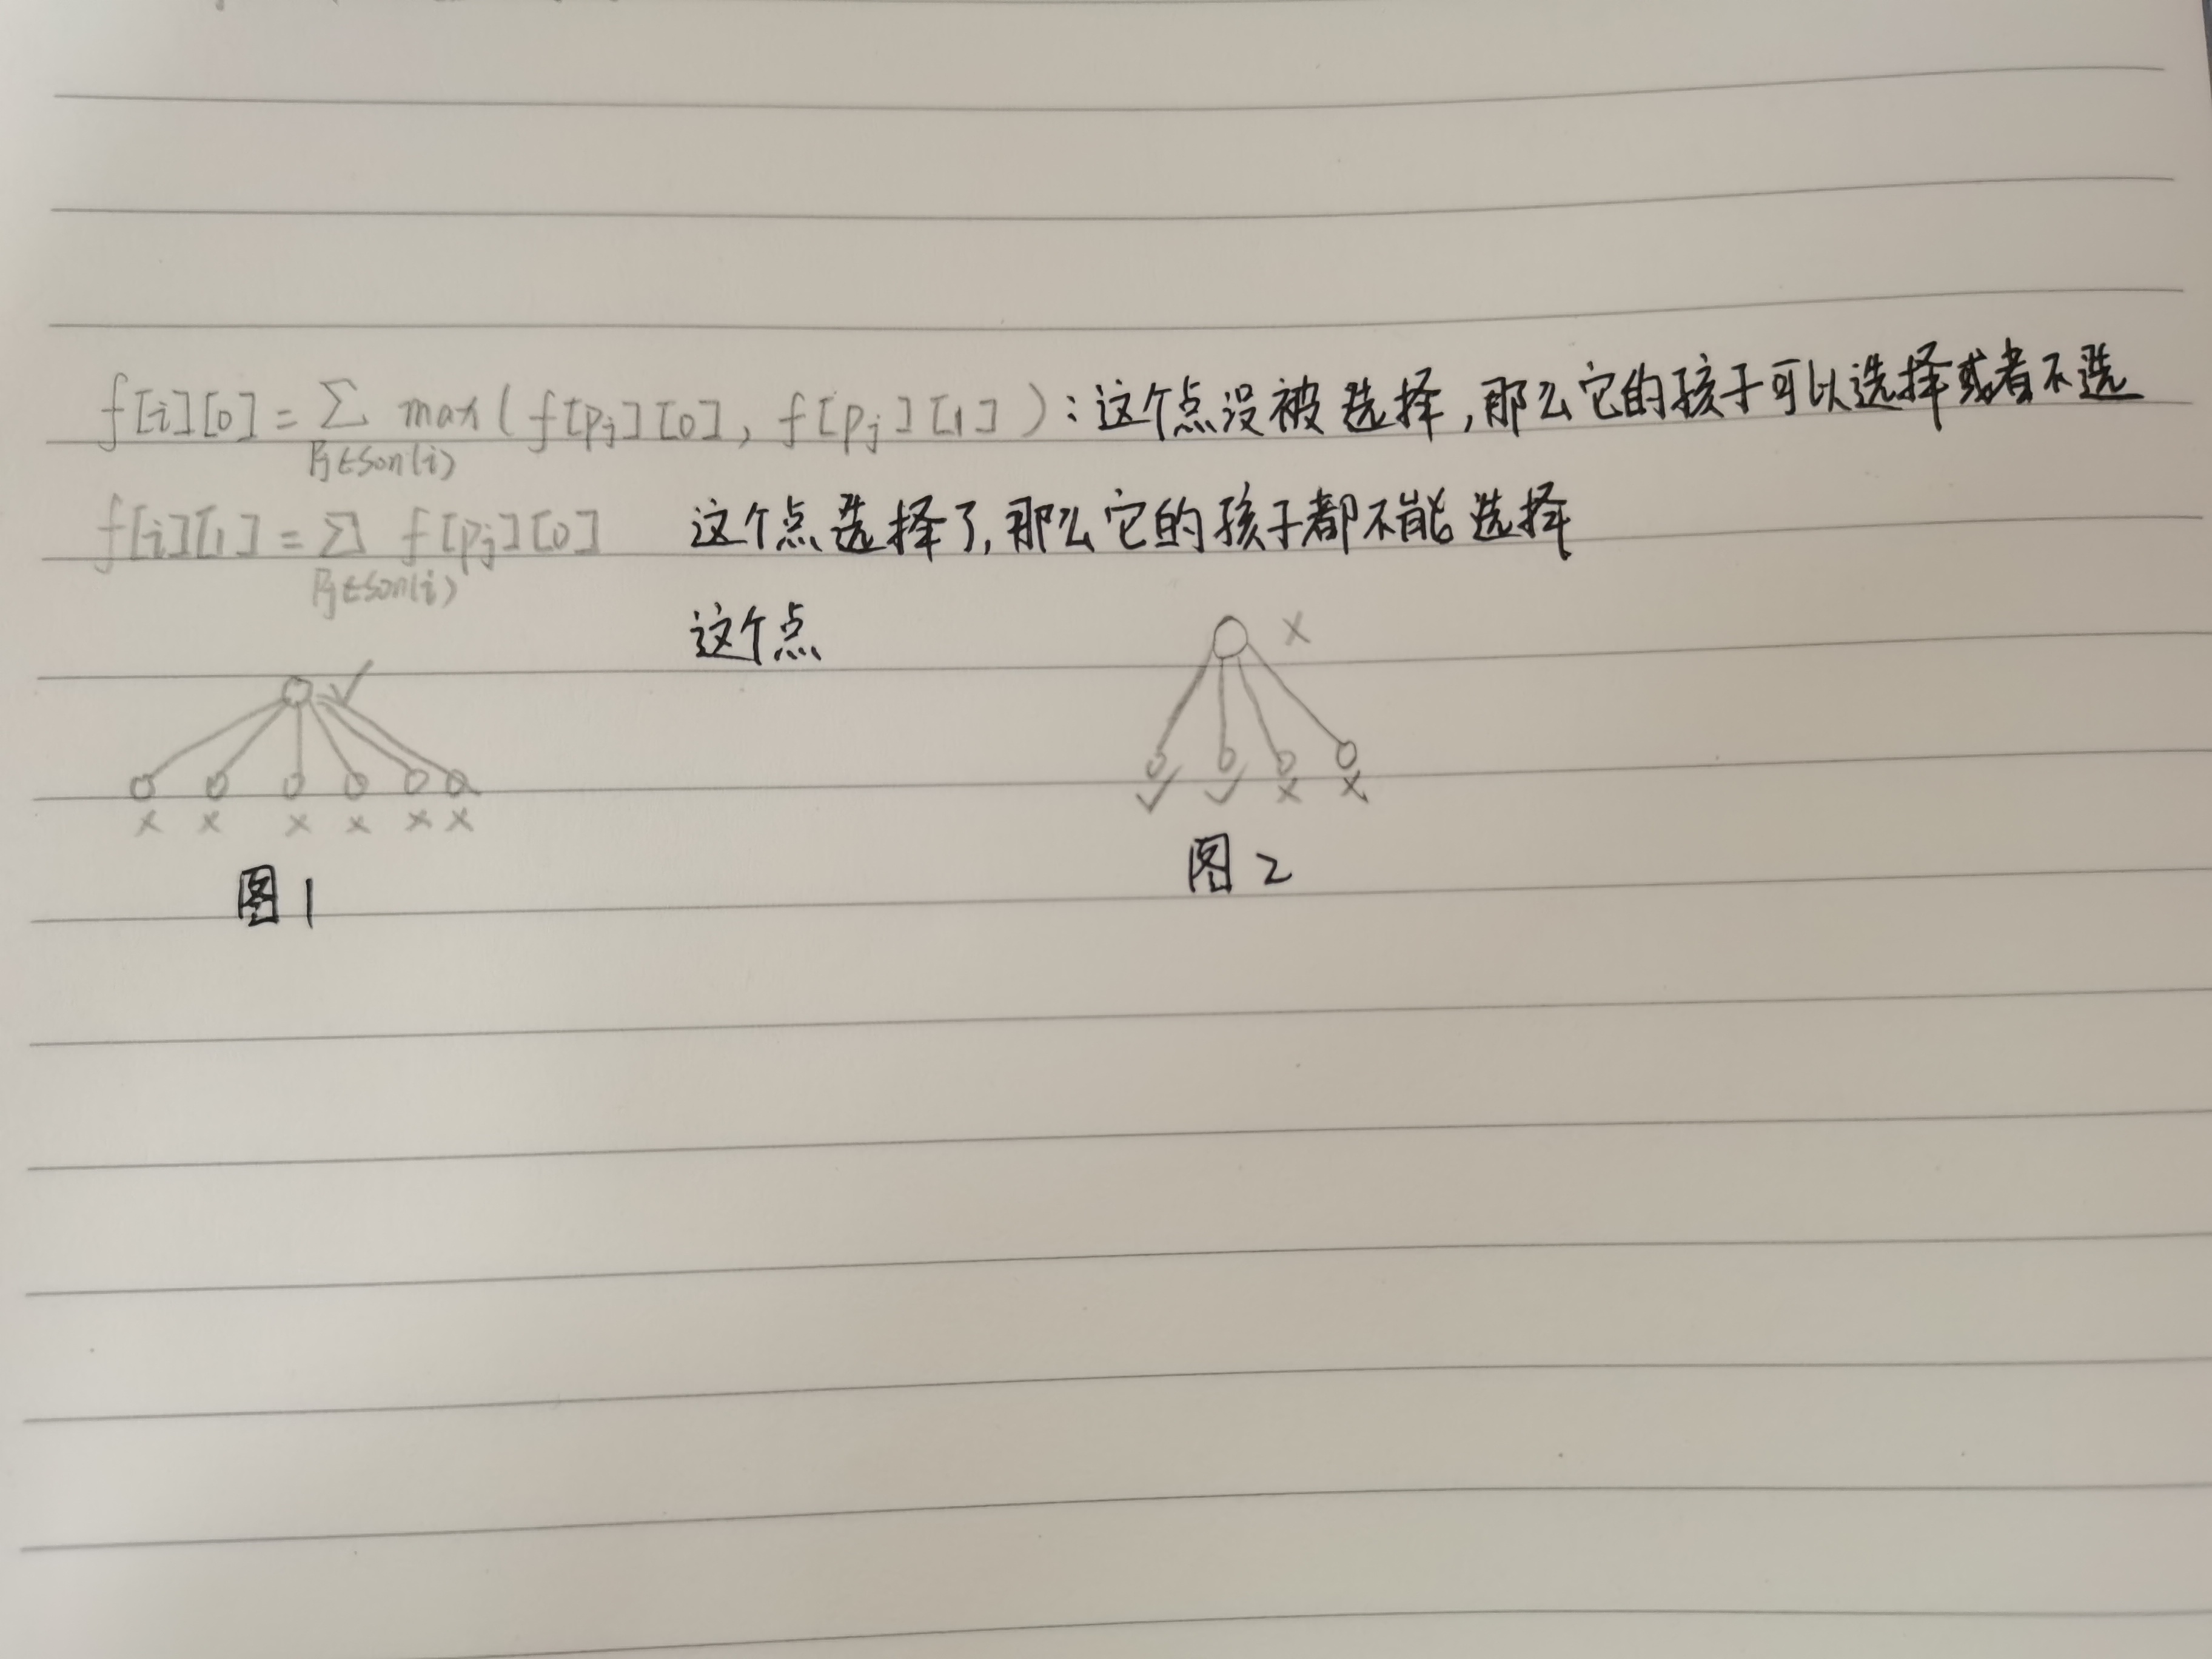 f[i][0] = ∑ max(f[pj][0], f[pj][1]) : 这个点没被选择,那么它的孩子可以选择或者不选
Pj∈Son(i)
f[i][1] = ∑ f[pj][0] 这个点选择了,那么它的孩子都不能选择
Pj∈Son(i)
这个点
图1
图2